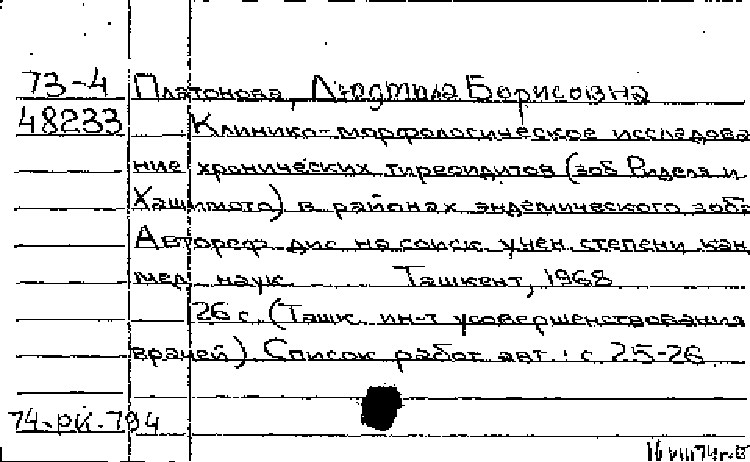 73-4 Платонова, Людмила Борисовна
48233 Клинико-морфологическое исследова
ние хронических тиреоидитов (зоб Риделя и
Хашимото) в районах эндемического зоба
Автореф. дис. на соиск. учен. степени кан
мед. наук. Ташкент, 1968
26 с. (Ташк. ин-т усовершенствования
врачей). Список работ авт.: с. 25-26
74-рк-794